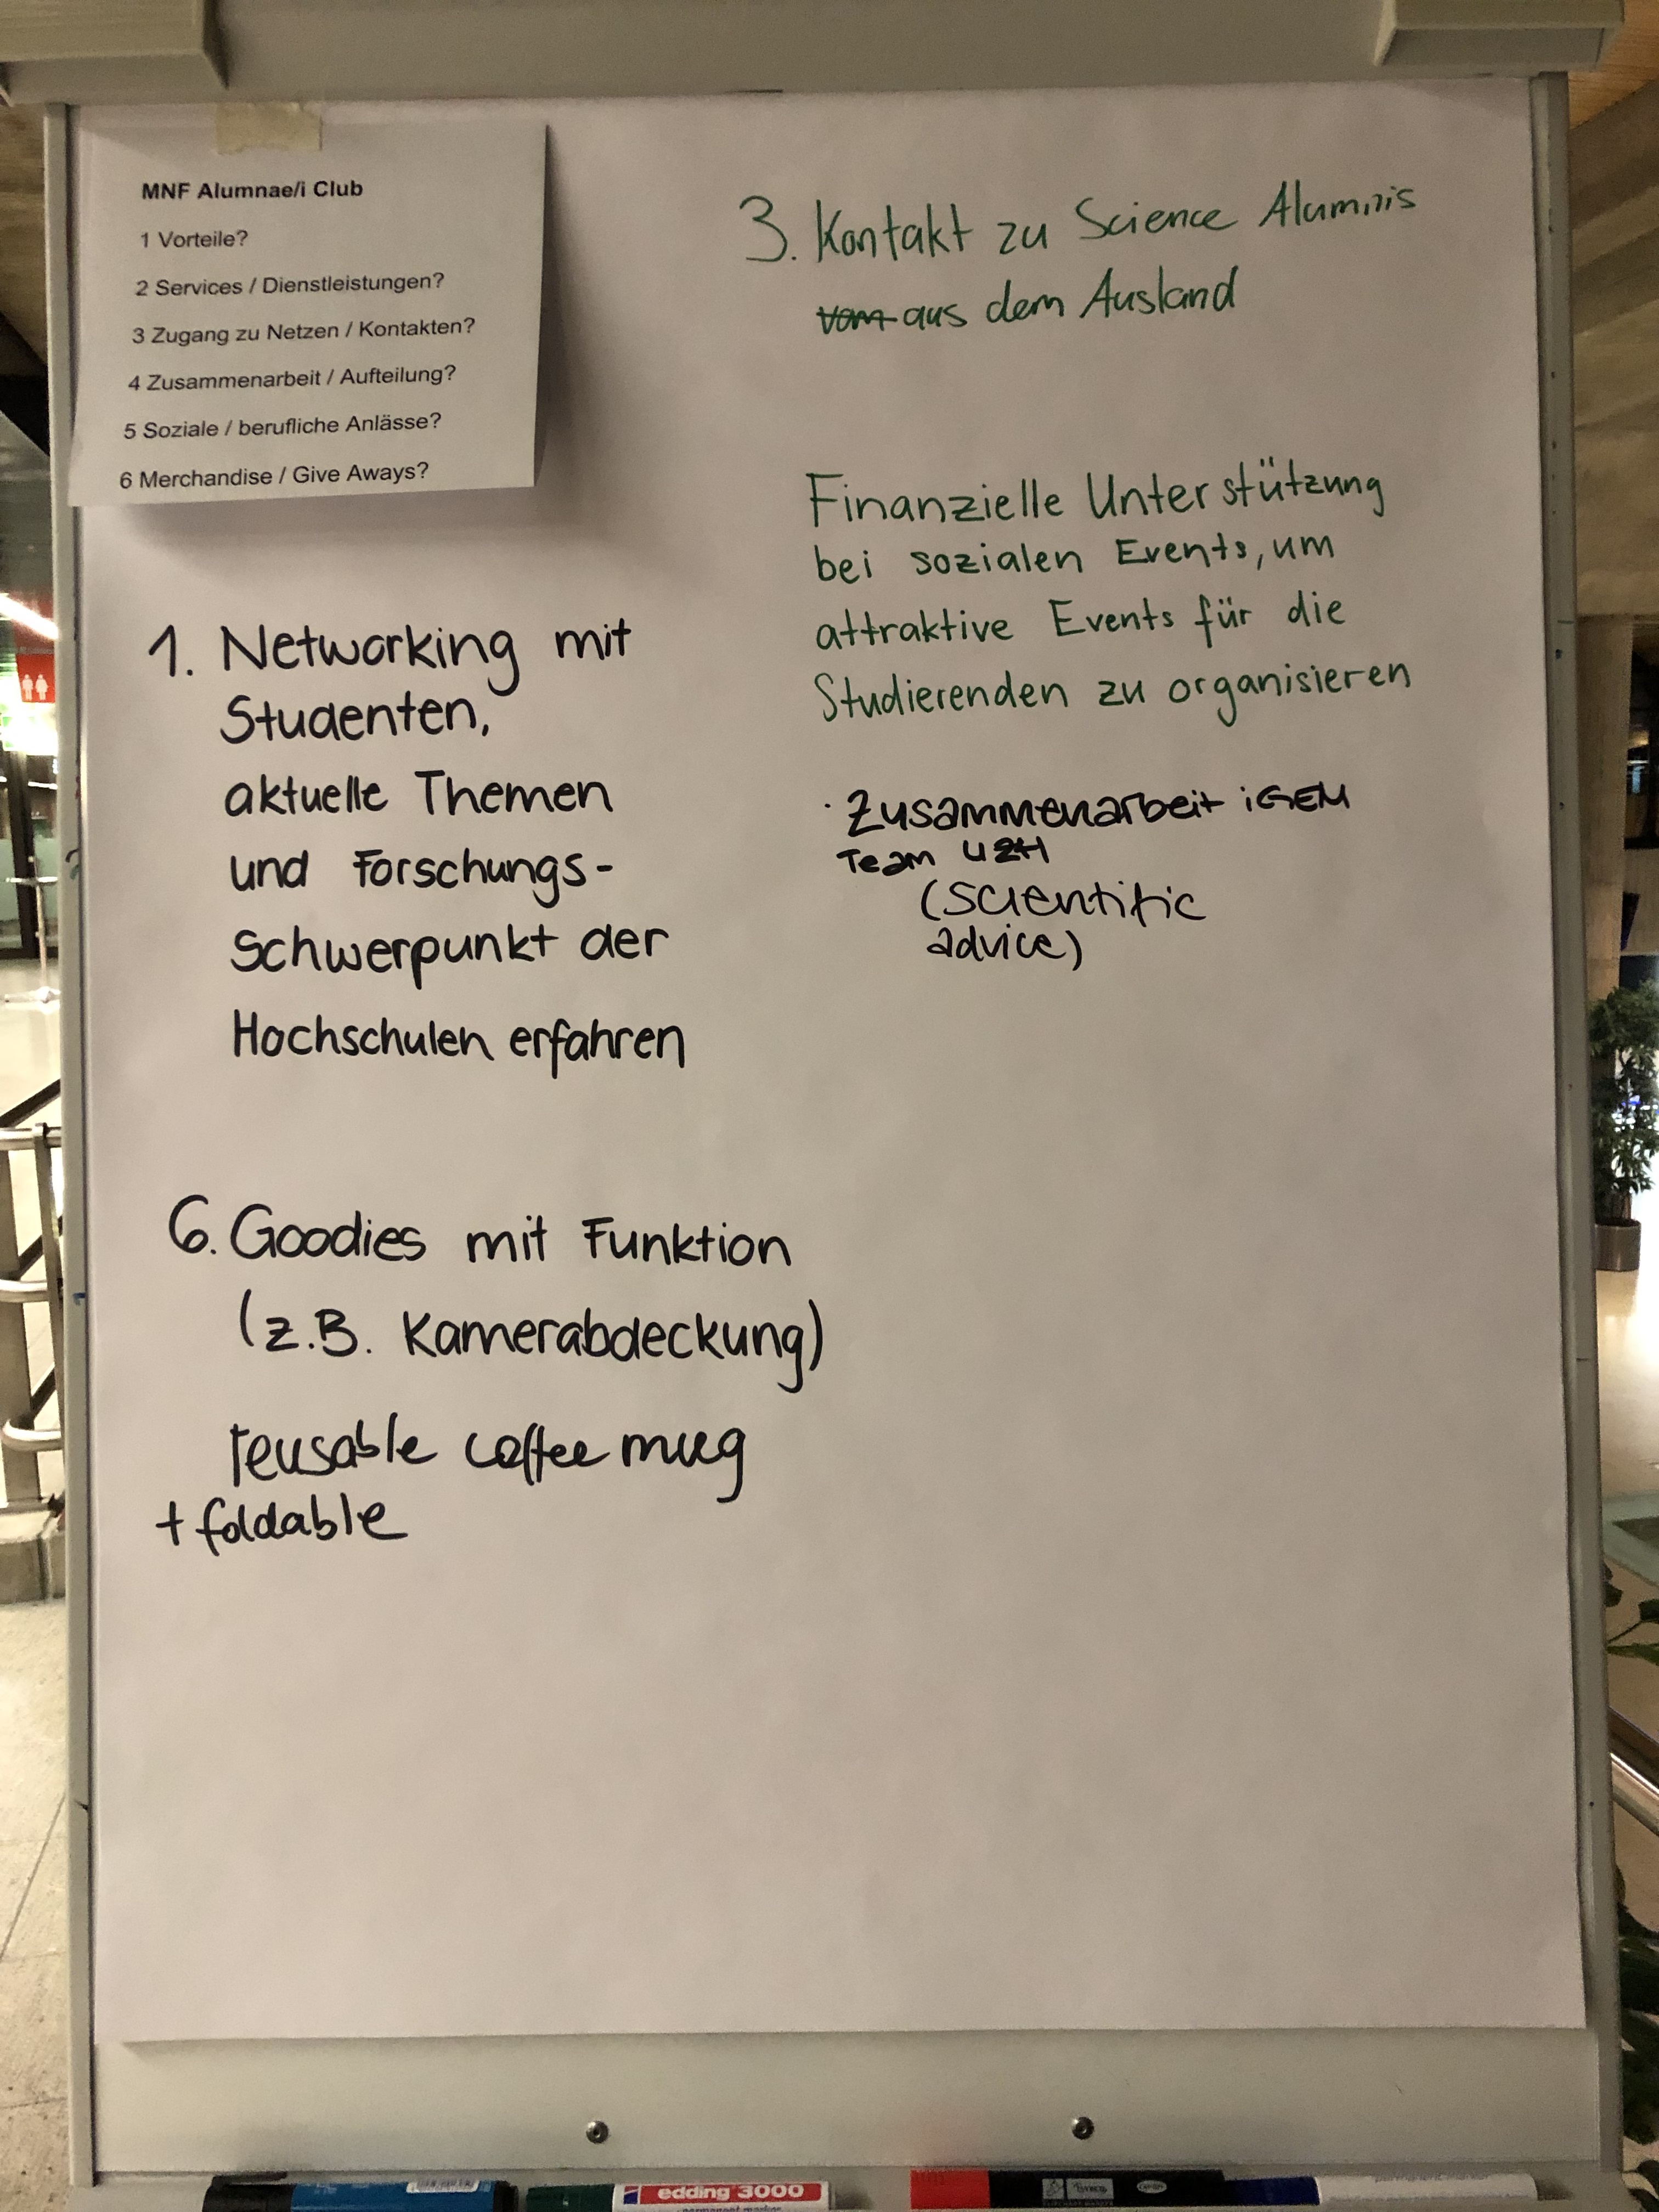 MNF Alumnae/i Club
1 Vorteile?
2 Services / Dienstleistungen?
3 Zugang zu Netzen / Kontakten?
4 Zusammenarbeit / Aufteilung?
5 Soziale / berufliche Anlässe?
6 Merchandise / Give Aways?
1. Networking mit
Studenten,
aktuelle Themen
und Forschungs-
Schwerpunkt der
Hochschulen erfahren
6. Goodies mit Funktion
(z.B. Kamerabdeckung)
reusable coffee mug
+ foldable
3. Kontakt zu Science Alumnis
vom aus dem Ausland
Finanzielle Unterstützung
bei sozialen Events, um
attraktive Events für die
Studierenden zu organisieren
· Zusammenarbeit iGEM
Team UZH
(scientific
advice)
edding 3000
permanent marker